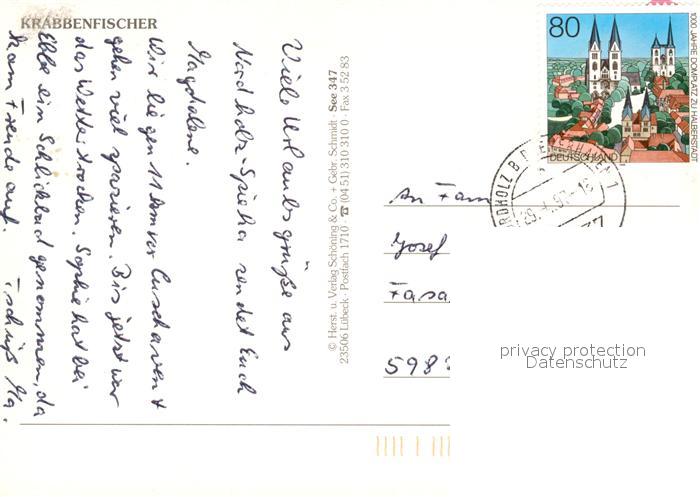 KRABBENFISCHER
Viele Urlaubsgrüße aus
Nordholz-Spieka sendet Euch
Magdalene.
Wir liegen 11 km vor Cuxhaven +
gehen viel spazieren. Bis jetzt war
das Wetter trocken. Sophie hat bei
Ebbe ein Schlickbad genommen, da
kam Freude auf. Tschüß Ma.
© Herst. u. Verlag Schöning & Co. + Gebr. Schmidt · See 347
23506 Lübeck · Postfach 1710 · ☎ (04 51) 310 310 0 · Fax 3 52 83
80
1000 JAHRE DOMPLATZ ZU HALBERSTADT
DEUTSCHLAND
An Fam
Josef
Fasa
598
privacy protection
Datenschutz